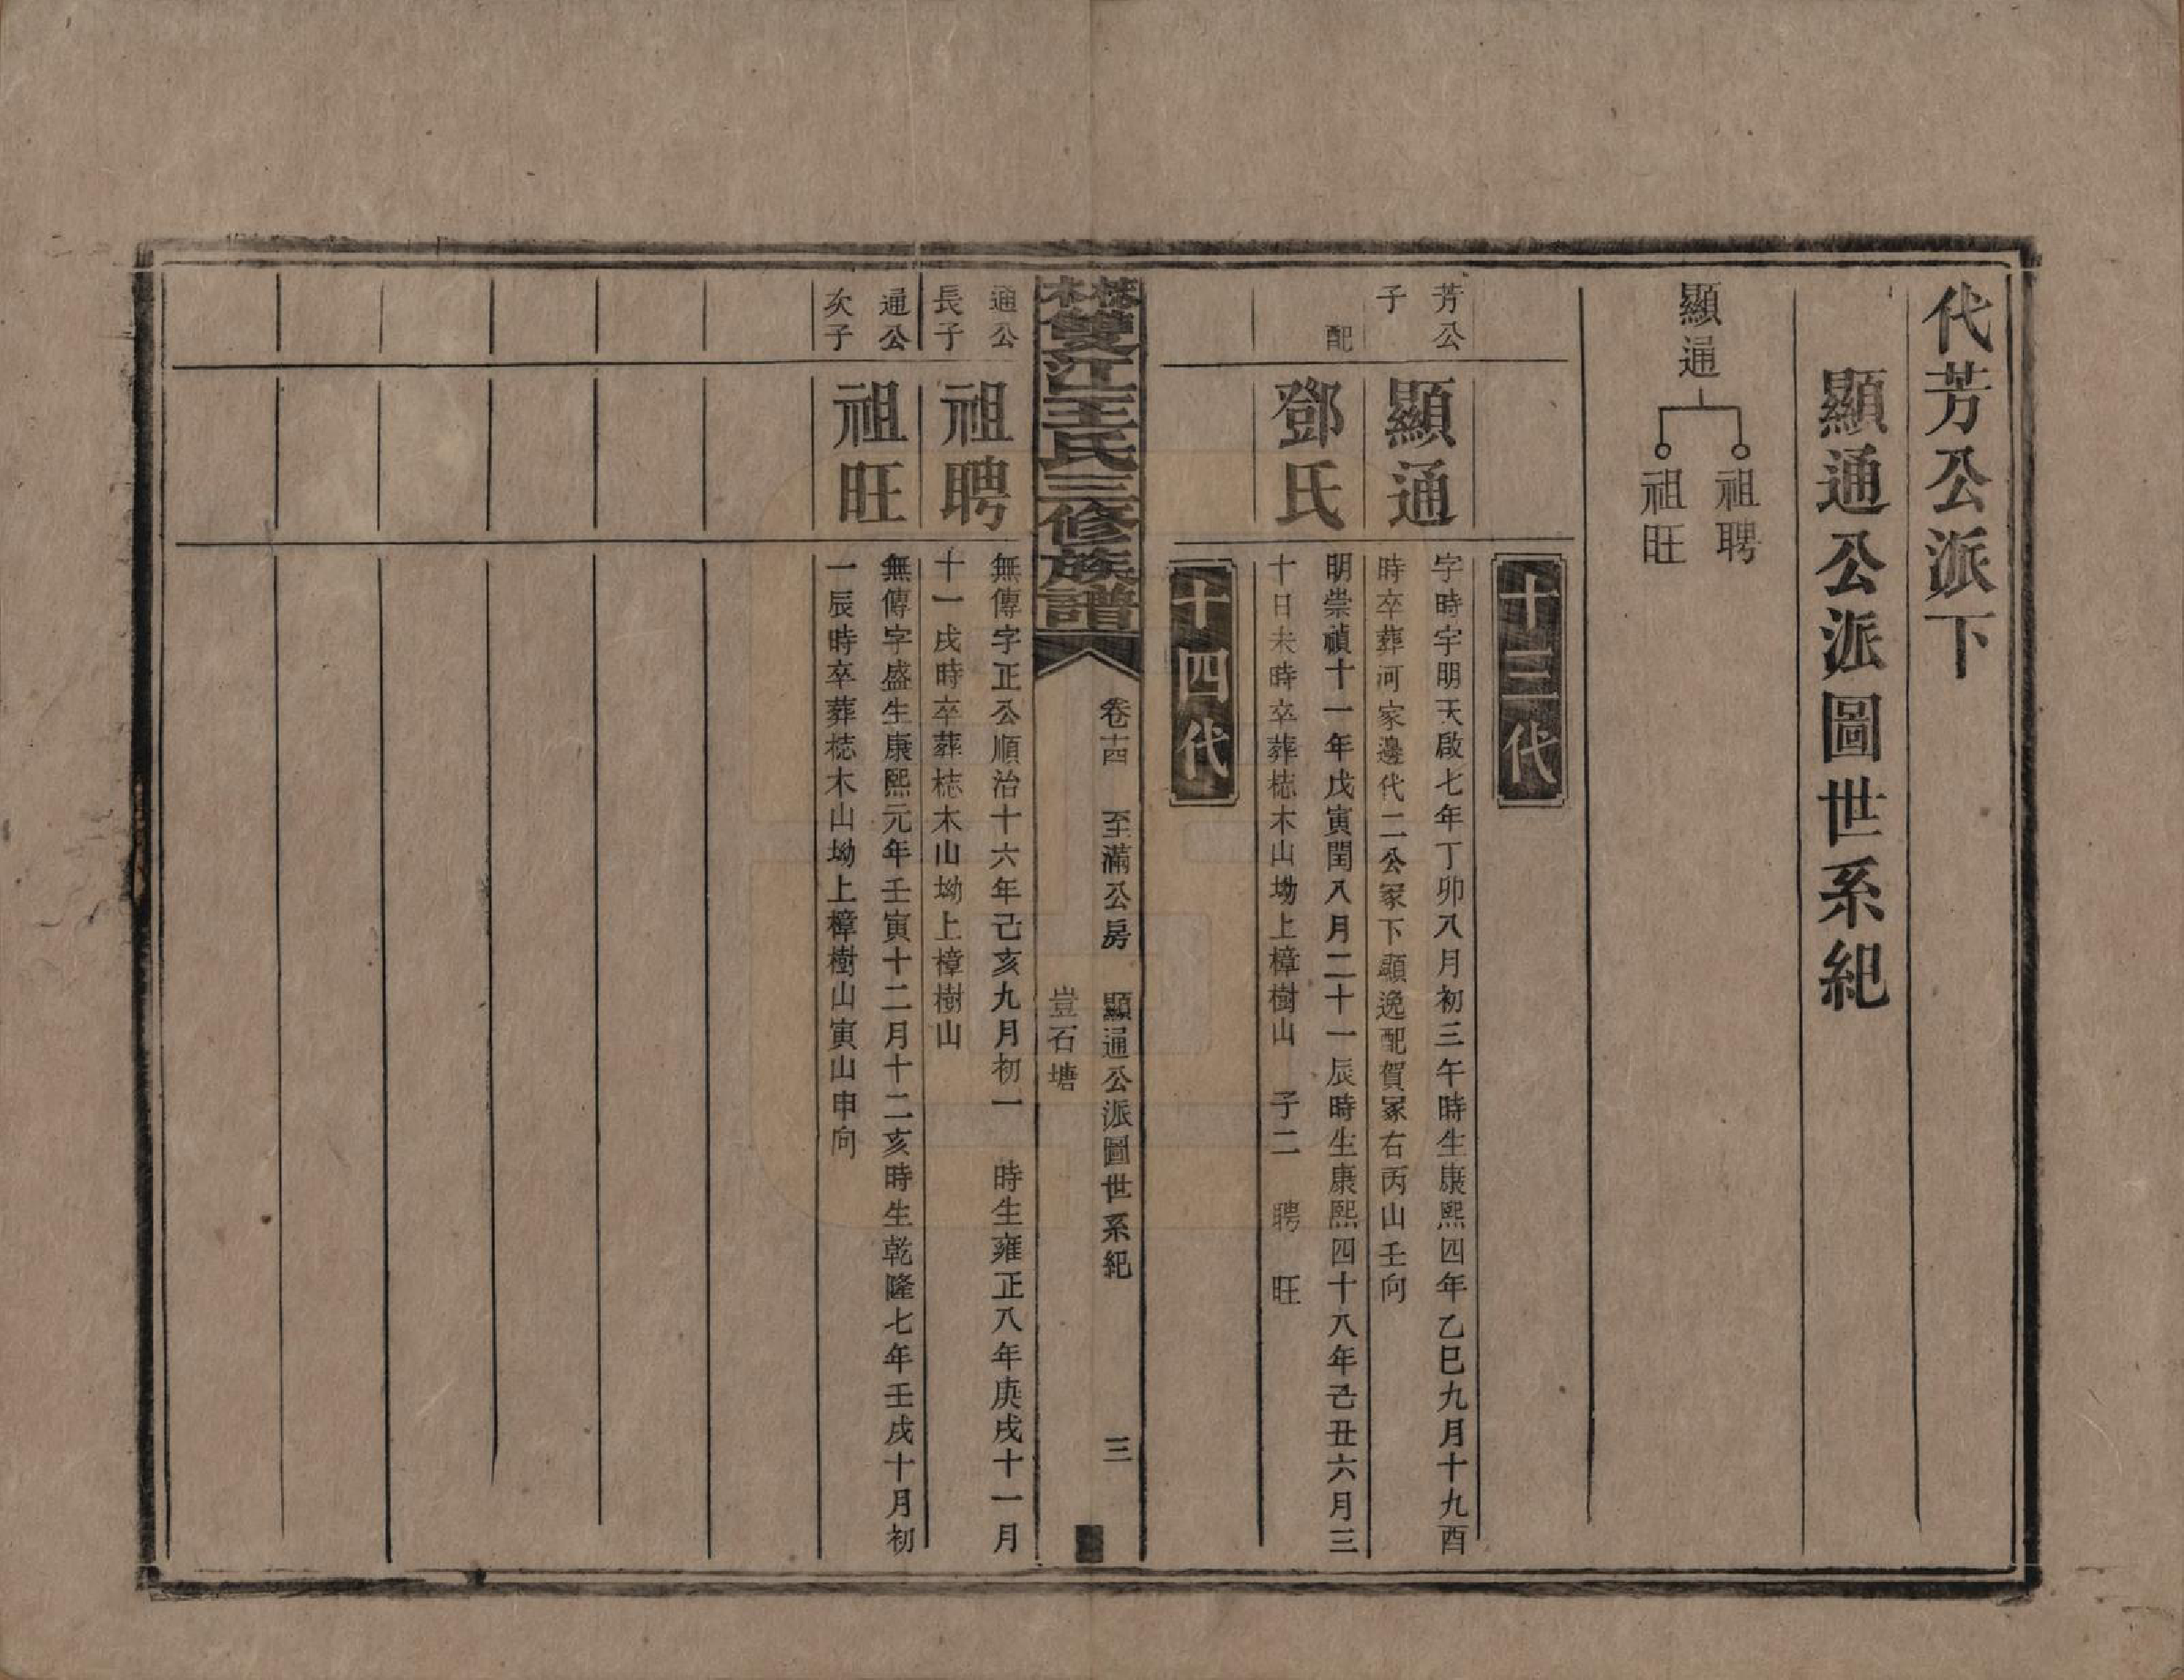 代芳公派下
顯通公派圖世系紀
顯通
祖聘
祖旺
十三代
芳公
子
顯通
字時宇明天啟七年丁卯八月初三午時生康熙四年乙巳九月十九酉
時卒葬河家邊代二公冢下顯逸配賀冢右丙山壬向
配
鄧氏
明崇禎十一年戊寅閏八月二十一辰時生康熙四十八年己丑六月三
十日未時卒葬梽木山坳上樟樹山 子二 聘 旺
十四代
雙江王氏三修族譜
卷十四 至滿公房 顯通公派圖世系紀 三
豈石塘
通公
長子
祖聘
無傳字正公順治十六年己亥九月初一 時生雍正八年庚戌十一月
十一戌時卒葬梽木山坳上樟樹山
通公
次子
祖旺
無傳字盛生康熙元年壬寅十二月十二亥時生乾隆七年壬戌十月初
一辰時卒葬梽木山坳上樟樹山寅山申向